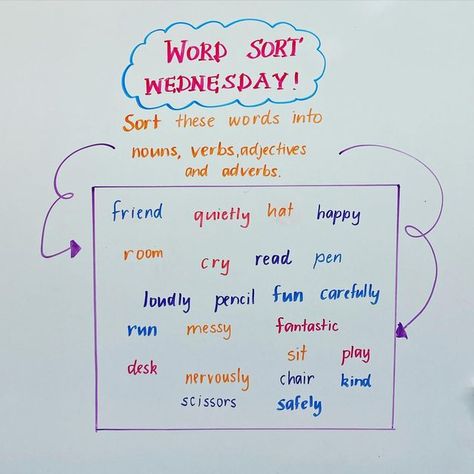 WORD SORT
WEDNESDAY!
Sort these words into
nouns, verbs, adjectives
and adverbs.
friend quietly hat happy
room cry read pen
loudly pencil fun carefully
run messy fantastic
sit play
desk nervously chair kind
scissors safely